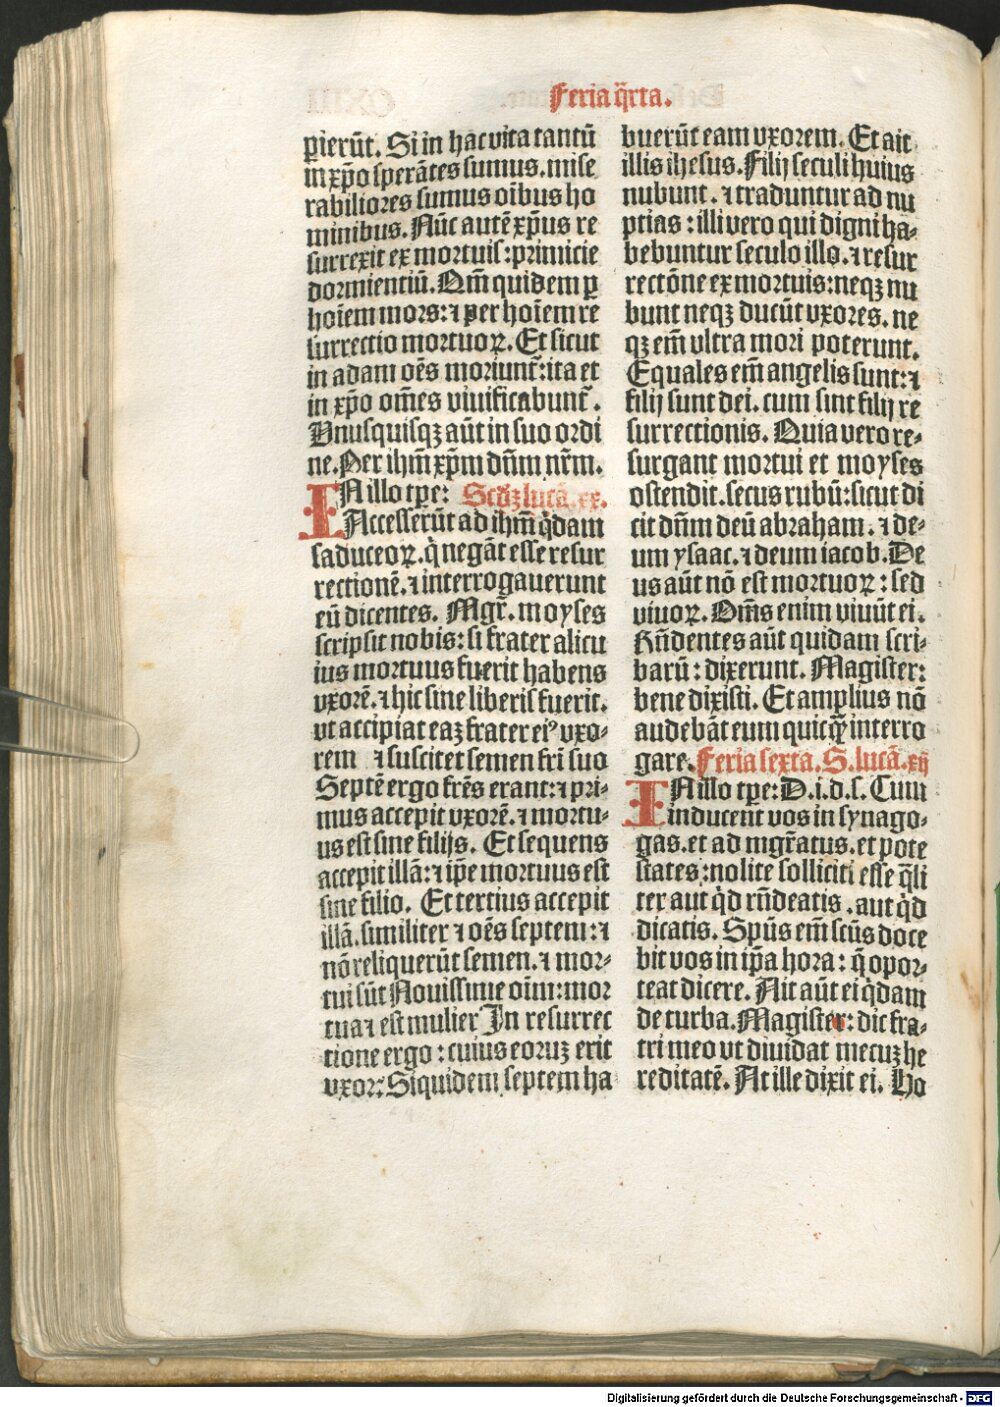 Feria q̃rta.
pierũt. Si in hac vita tantũ
in xp̃o sperãtes sumus. mise
rabiliores sumus oĩbus ho
minibus. Nũc autẽ xp̃us re
surrexit ex mortuis: primicie
dormientiũ. Qm̃ quidem ꝑ
hoĩem mors: ⁊ per hoĩem re
surrectio mortuoꝝ. Et sicut
in adam oẽs moriunt̃: ita et
in xp̃o om̃es viuificabunt̃.
Vnusquisqꝫ aũt in suo ordi
ne. Per ihm̃ xp̃m dñm nr̃m.
IN illo tp̃e: Scd̃ꝫ lucã. xx.
Accesserũt ad ihm̃ q̇dam
saduceoꝝ. q̇ negãt esse resur
rectionẽ. ⁊ interrogauerunt
eũ dicentes. Mgr̃. moyses
scripsit nobis: si frater alicu
ius mortuus fuerit habens
vxorẽ. ⁊ hic sine liberis fuerit.
vt accipiat eaꝫ frater eiꝰ vxo⸗
rem ⁊ suscitet semen fr̃i suo
Septẽ ergo fr̃es erant: ⁊ pri⸗
mus accepit vxorẽ. ⁊ mortu⸗
us est sine filijs. Et sequens
accepit illã: ⁊ ip̃e mortuus est
sine filio. Et tertius accepit
illã. similiter ⁊ oẽs septem: ⁊
nõ reliquerũt semen. ⁊ mor⸗
tui sũt Nouissime oĩm: mor
tua ⁊ est mulier In resurrec
tione ergo: cuius eoruꝫ erit
vxor: Siquidem septem ha
buerũt eam vxorem. Et ait
illis ihesus. Filij seculi huius
nubunt. ⁊ traduntur ad nu
ptias: illi vero qui digni ha⸗
bebuntur seculo illo. ⁊ resur
rectõne ex mortuis: neqꝫ nu
bunt neqꝫ ducũt vxores. ne
qꝫ em̃ vltra mori poterunt.
Equales em̃ angelis sunt: ⁊
filij sunt dei. cum sint filij re
surrectionis. Quia vero re⸗
surgant mortui et moyses
ostendit. secus rubũ: sicut di
cit dñm deũ abraham. ⁊ de⸗
um ysaac. ⁊ deum iacob. De
us aũt nõ est mortuoꝝ: sed
viuoꝝ. Om̃s enim viuũt ei.
Rñdentes aũt quidam scri⸗
barũ: dixerunt. Magister:
bene dixisti. Et amplius nõ
audebãt eum quicq̃ interro
gare. Feria sexta. S. lucã. xij
IN illo tp̃e: D. i. d. s. Cum
inducent vos in synago⸗
gas. et ad mgr̃atus. et pote
states: nolite solliciti esse q̃li
ter aut q̇d rñdeatis. aut q̇d
dicatis. Spũs em̃ scũs doce
bit vos in ip̃a hora: q̃ opor⸗
teat dicere. Ait aũt ei q̇dam
de turba. Magister: dic fra⸗
tri meo vt diuidat mecuꝫ he
reditatẽ. At ille dixit ei. Ho
Digitalisierung gefördert durch die Deutsche Forschungsgemeinschaft - DFG